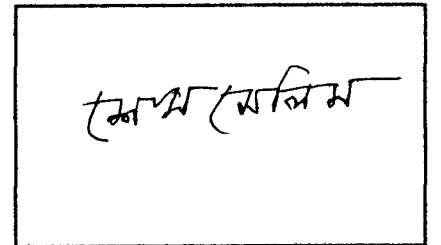 শেখ সেলিম